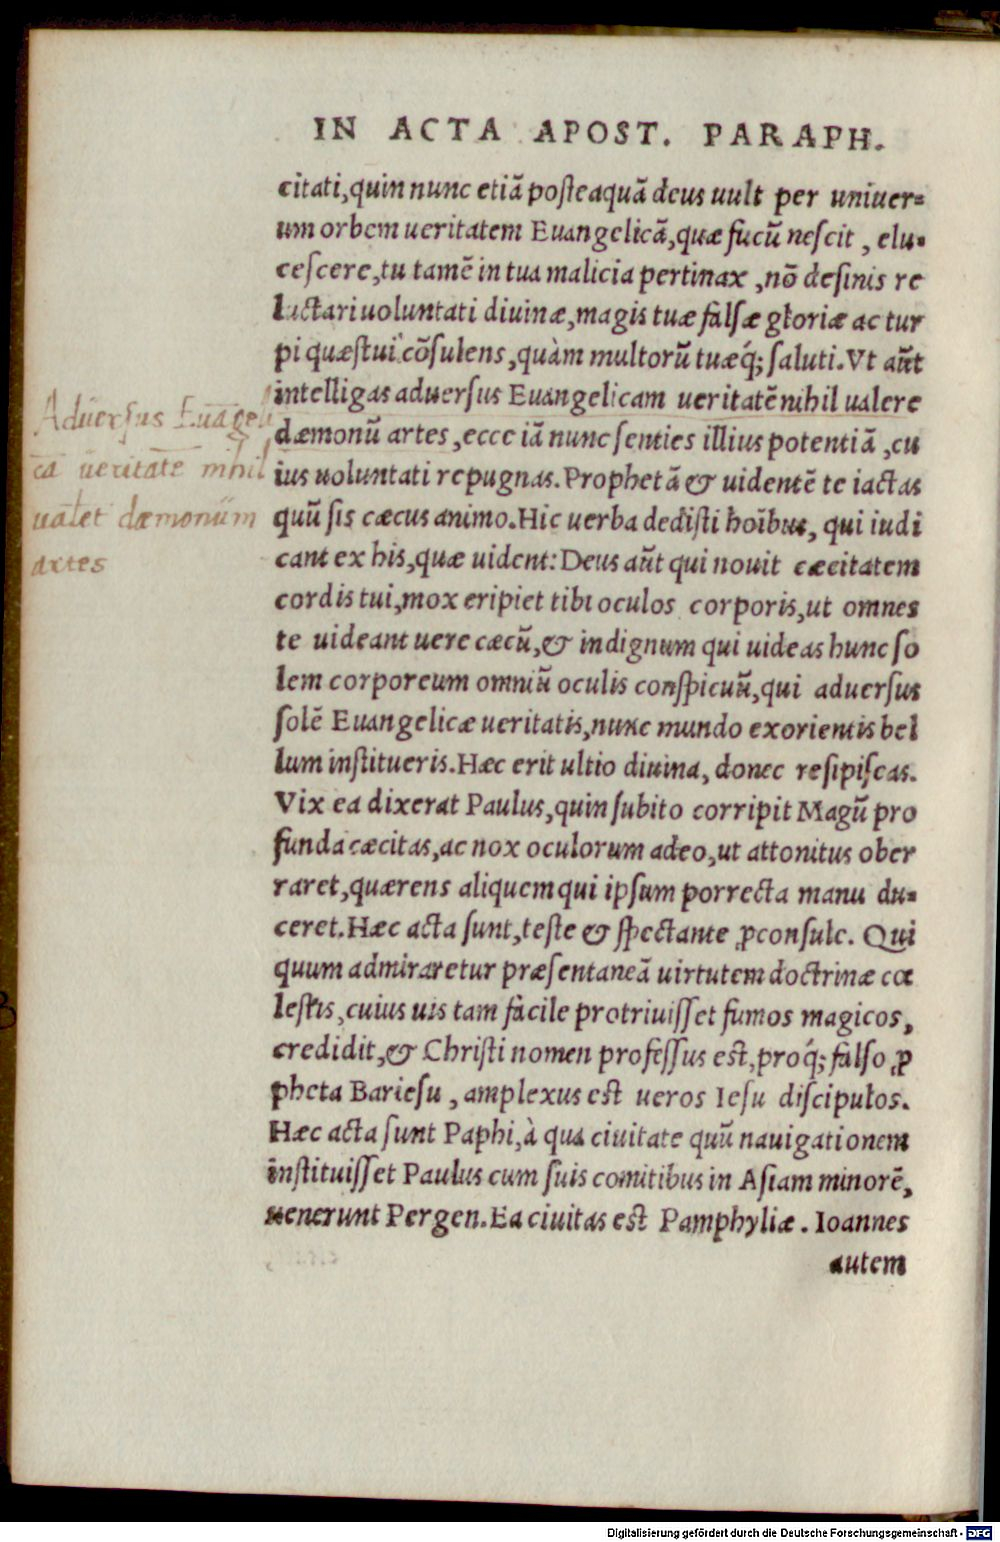 IN ACTA APOST. PARAPH.
citati, quin nunc etiã posteaquã deus uult per uniuer=
um orbem ueritatem Euangelicã, quæ fucũ nescit, elu=
cescere, tu tamẽ in tua malicia pertinax, nõ desinis re
luctari uoluntati diuinæ, magis tuæ falsæ gloriæ ac tur
pi quæstui cõsulens, quàm multorũ tuæq́; saluti. Vt aũt
intelligas aduersus Euangelicam ueritatẽ nihil ualere
dæmonũ artes, ecce iã nunc senties illius potentiã, cu
ius uoluntati repugnas. Prophetã & uidentẽ te iactas
quũ sis cæcus animo. Hic uerba dedisti hoĩbus, qui iudi
cant ex his, quæ uident: Deus aũt qui nouit cæcitatem
cordis tui, mox eripiet tibi oculos corporis, ut omnes
te uideant uere cæcũ, & indignum qui uideas hunc so
lem corporeum omniũ oculis conspicuũ, qui aduersus
solẽ Euangelicæ ueritatis, nunc mundo exorientis bel
lum institueris. Hæc erit ultio diuina, donec resipiscas.
Vix ea dixerat Paulus, quin subito corripit Magũ pro
funda cæcitas, ac nox oculorum adeo, ut attonitus ober
raret, quærens aliquem qui ipsum porrecta manu du=
ceret. Hæc acta sunt, teste & spectante ꝓconsule. Qui
quum admiraretur præsentaneã uirtutem doctrinæ cœ
lestis, cuius uis tam facile protriuisset fumos magicos,
credidit, & Christi nomen professus est, proq́; falso ꝓ
pheta Bariesu, amplexus est ueros Iesu discipulos.
Hæc acta sunt Paphi, à qua ciuitate quũ nauigationem
instituisset Paulus cum suis comitibus in Asiam minorẽ,
uenerunt Pergen. Ea ciuitas est Pamphyliæ. Ioannes
autem
Aduersus Euãgeli
cã ueritatẽ nihil
ualet dæmonum
artes
Digitalisierung gefördert durch die Deutsche Forschungsgemeinschaft - DFG